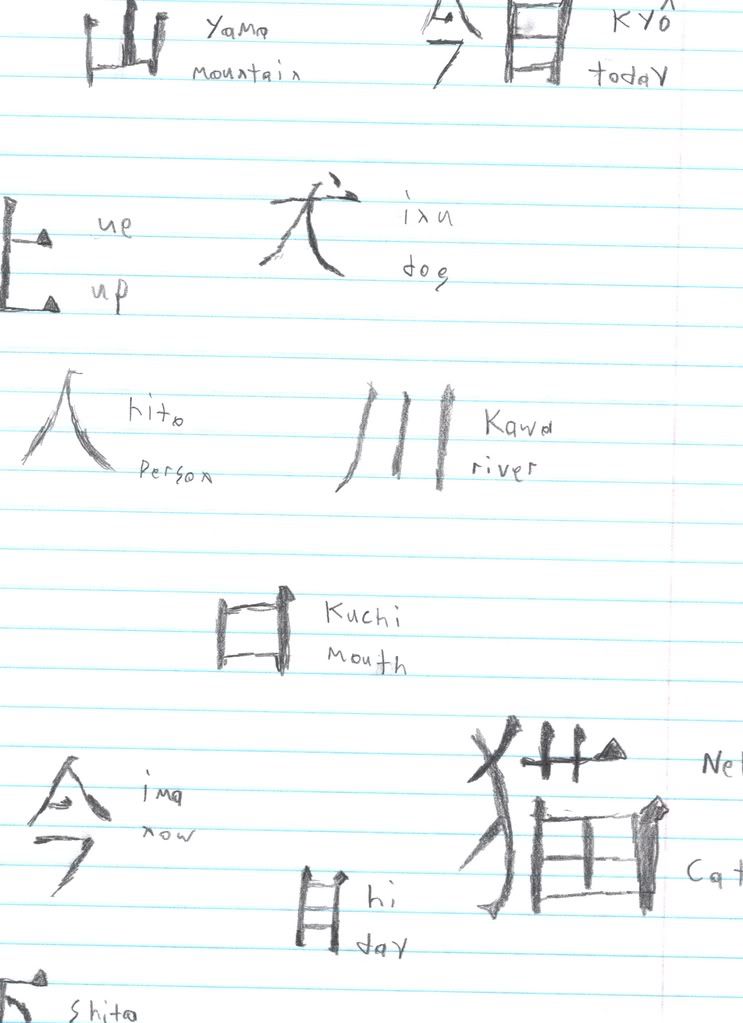 山 yama
mountain
今日 KYÔ
today
上 ue
up
犬 inu
dog
人 hito
person
川 Kawa
river
口 Kuchi
mouth
今 ima
now
猫 Ne
Cat
日 hi
day
下 shita